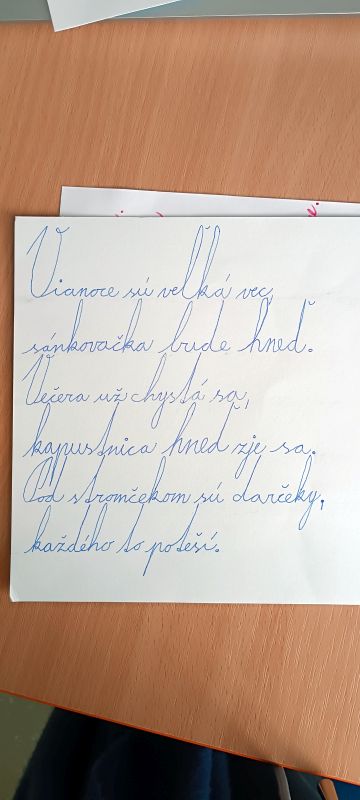 Vianoce sú veľká vec,
sánkovačka bude hneď.
Večera už chystá sa,
kapustnica hneď zje sa.
Pod stromčekom sú darčeky,
každého to poteší.